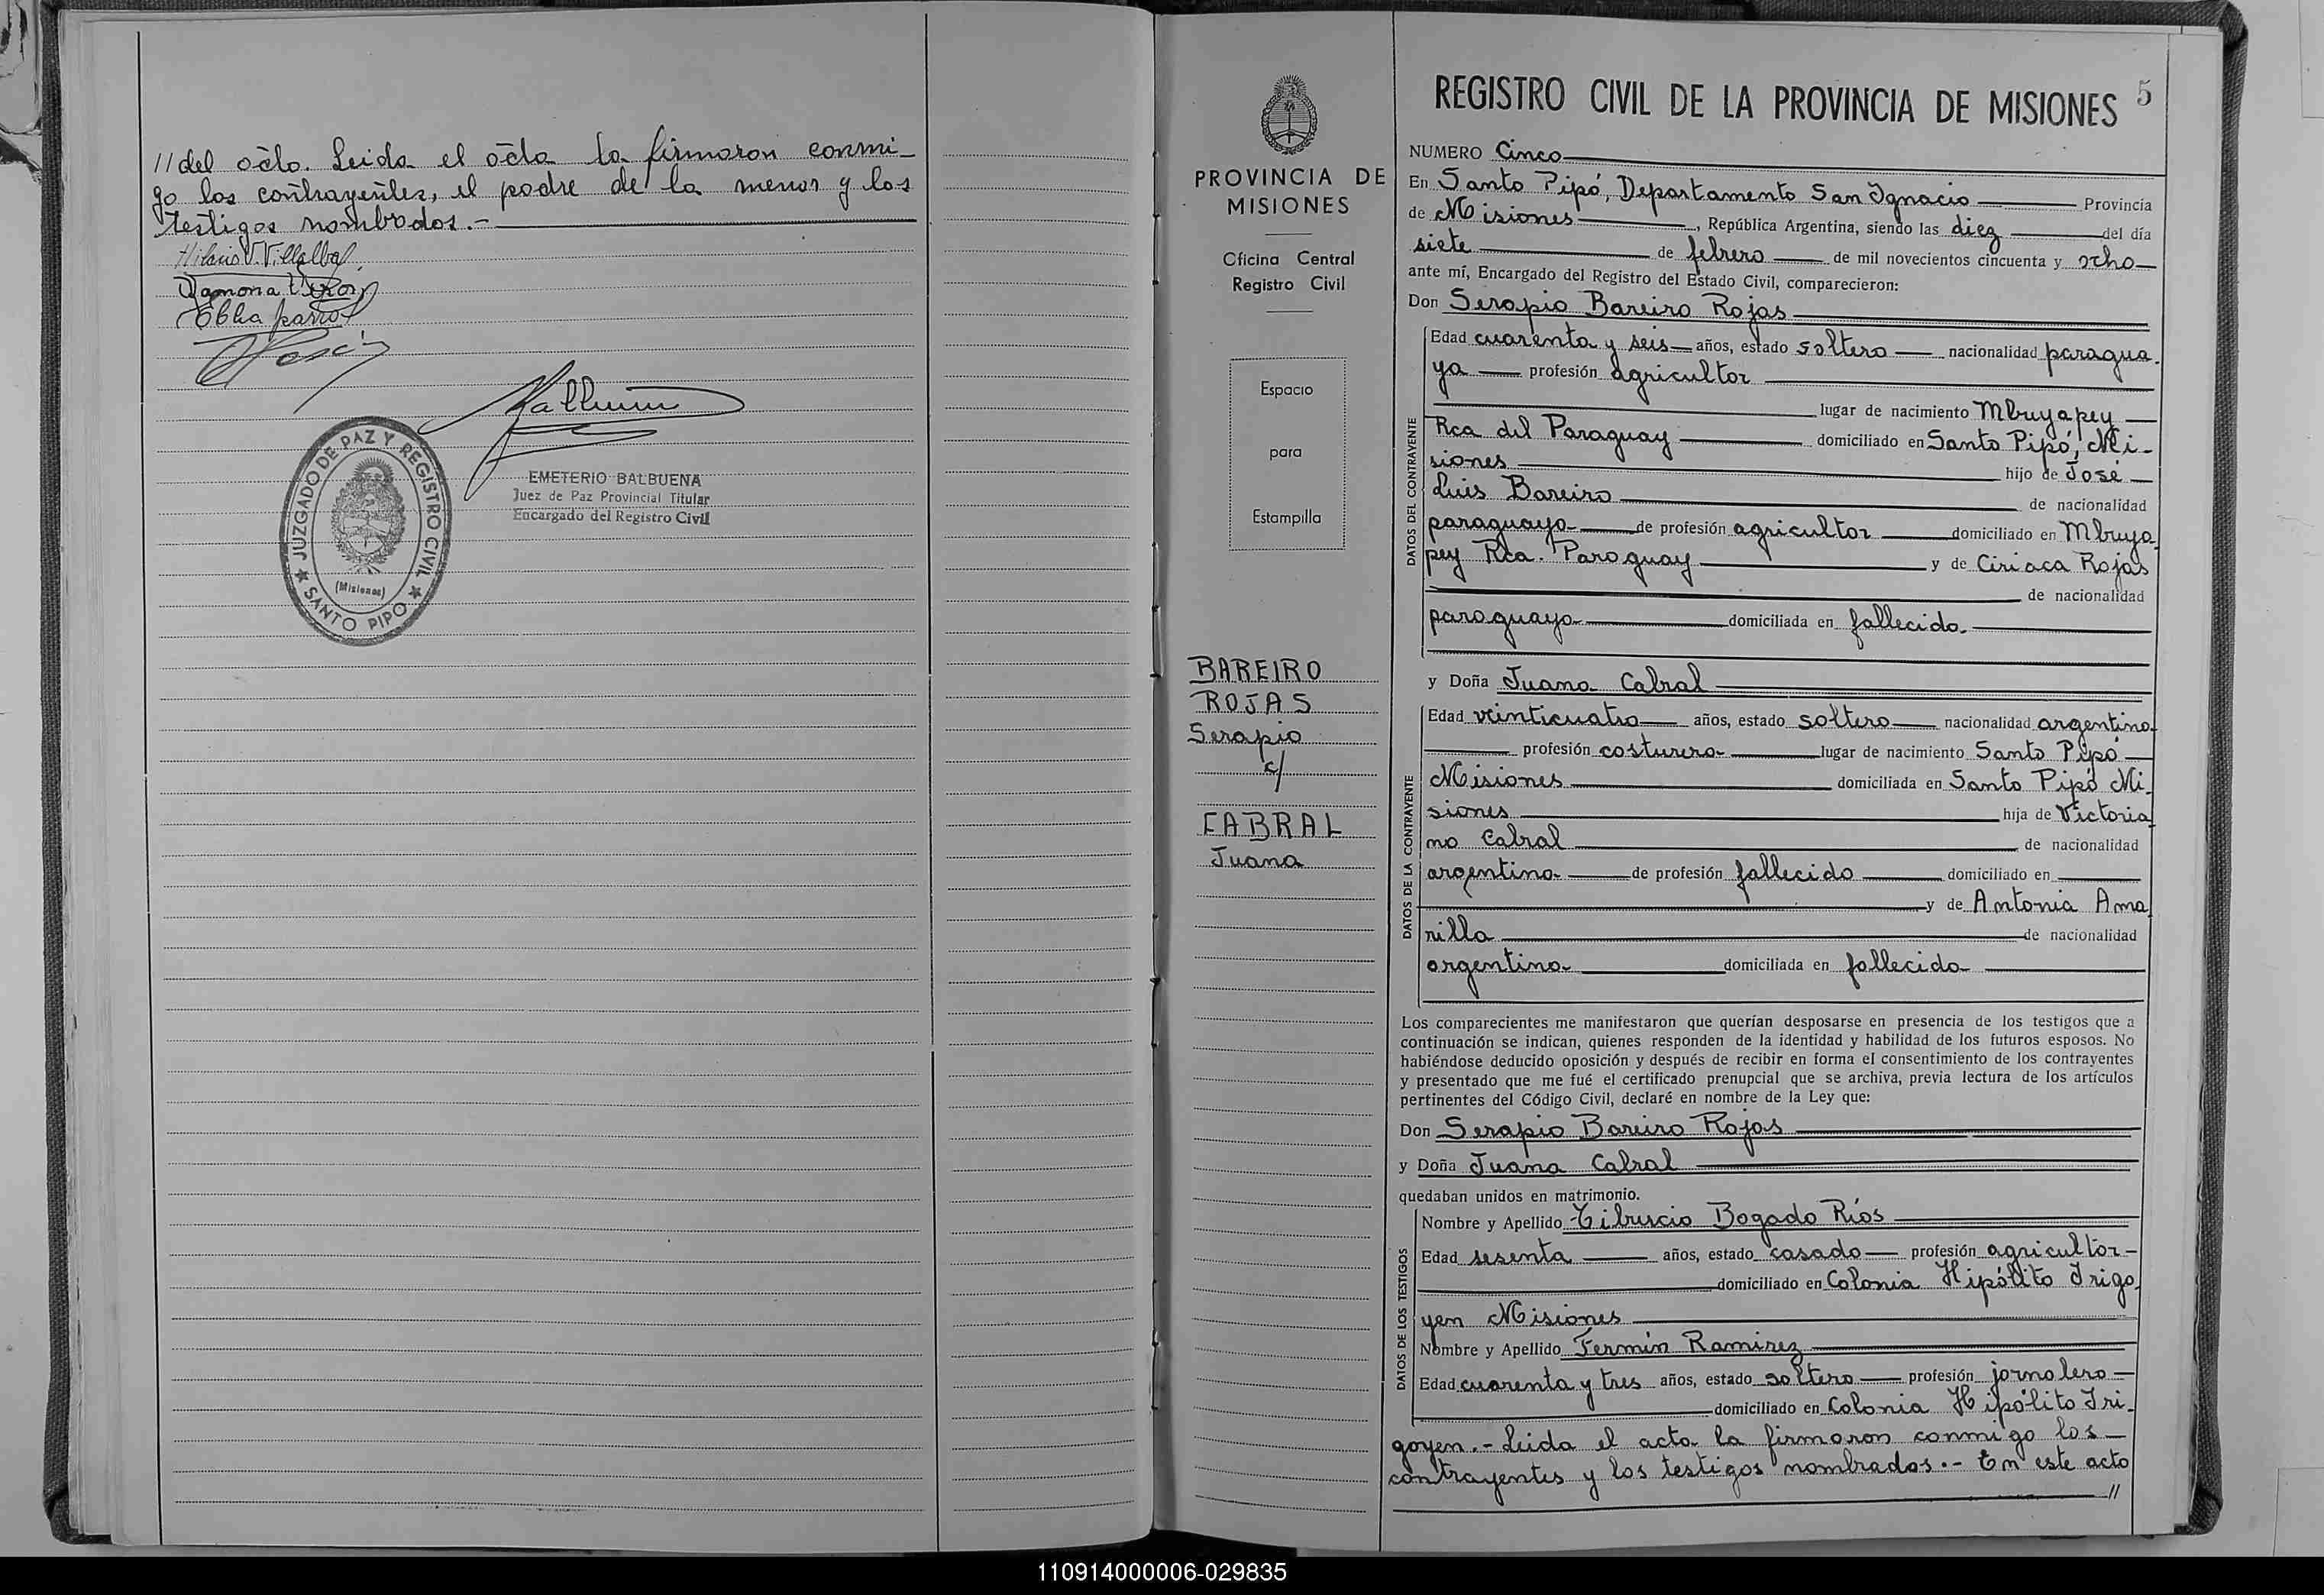 //del acta. Leida el acta la firmaron conmi-
go los contrayentes, el padre de la menor y los
testigos nombrados.-
Hilario V. Villalba
Ramona
JUZGADO DE PAZ Y REGISTRO CIVIL
(Misiones)
★ SANTO PIPO ★
EMETERIO BALBUENA
Juez de Paz Provincial Titular
Encargado del Registro Civil
PROVINCIA DE
MISIONES
Oficina Central
Registro Civil
Espacio
para
Estampilla
BAREIRO
ROJAS
Serapio
c/
CABRAL
Juana
REGISTRO CIVIL DE LA PROVINCIA DE MISIONES 5
NUMERO Cinco
En Santo Pipó, Departamento San Ignacio Provincia
de Misiones, República Argentina, siendo las diez del día
siete de febrero de mil novecientos cincuenta y ocho
ante mí, Encargado del Registro del Estado Civil, comparecieron:
Don Serapio Bareiro Rojas
DATOS DEL CONTRAYENTE
Edad cuarenta y seis años, estado soltero nacionalidad paragua-
ya profesión agricultor
lugar de nacimiento Mbuyapey
Rca del Paraguay domiciliado en Santo Pipó, Mi-
siones hijo de José
Luis Bareiro de nacionalidad
paraguaya de profesión agricultor domiciliado en Mbuya-
pey Rca. Paraguay y de Ciriaca Rojas
de nacionalidad
paraguaya domiciliada en fallecida
y Doña Juana Cabral
DATOS DE LA CONTRAYENTE
Edad veinticuatro años, estado soltera nacionalidad argentina
profesión costurera lugar de nacimiento Santo Pipó
Misiones domiciliada en Santo Pipó Mi-
siones hija de Victoria
no Cabral de nacionalidad
argentina de profesión fallecido domiciliado en
y de Antonia Ama
rilla de nacionalidad
argentina domiciliada en fallecida
Los comparecientes me manifestaron que querían desposarse en presencia de los testigos que a
continuación se indican, quienes responden de la identidad y habilidad de los futuros esposos. No
habiéndose deducido oposición y después de recibir en forma el consentimiento de los contrayentes
y presentado que me fué el certificado prenupcial que se archiva, previa lectura de los artículos
pertinentes del Código Civil, declaré en nombre de la Ley que:
Don Serapio Bareiro Rojas
y Doña Juana Cabral
quedaban unidos en matrimonio.
DATOS DE LOS TESTIGOS
Nombre y Apellido Tiburcio Bogado Ríos
Edad sesenta años, estado casado profesión agricultor-
domiciliado en Colonia Hipólito Irigo
yen Misiones
Nombre y Apellido Fermín Ramirez
Edad cuarenta y tres años, estado soltero profesión jornalero
domiciliado en Colonia Hipólito Iri-
goyen.- Leida el acta la firmaron conmigo los
contrayentes y los testigos nombrados.- En este acto
//
110914000006-029835